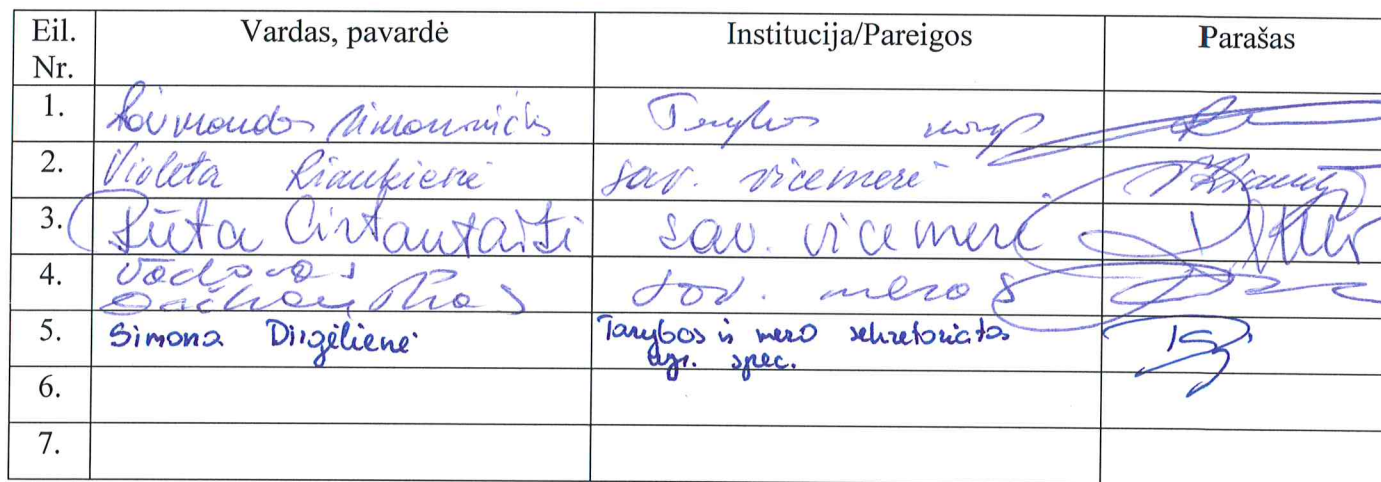 Eil. Nr. Vardas, pavardė Institucija/Pareigos Parašas
1. Raimondas Simonavičius Tarybos narys
2. Violeta Riaukienė sav. vicemerė
3. Rūta Cirtautaitė sav. vicemerė
4. Vaclovas Dačkauskas sav. meras
5. Simona Dirgėlienė Tarybos ir mero sekretoriatas
vyr. spec.
6.
7.